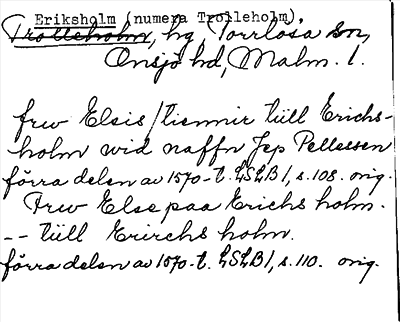 Eriksholm (numera Trolleholm),
Trolleholm, hg, Torrlösa sn,
Onsjö hd, Malm. l.
frw Elsis / tiennir tüll Erichs-
holm wid naffn Jep Pellessen
förra delen av 1570-t. LSLB 1, s. 108. orig.
Frw Else paa Erichs holm.
-- tüll Erirchs holm.
förra delen av 1570-t. LSLB 1, s. 110. orig.